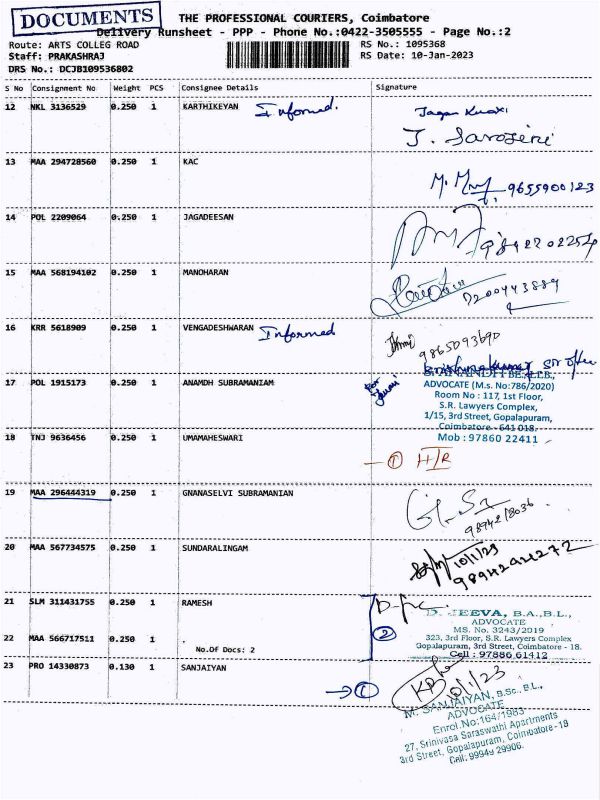 DOCUMENTS
THE PROFESSIONAL COURIERS, Coimbatore
Delivery Runsheet - PPP - Phone No.:0422-3505555 - Page No.:2
Route: ARTS COLLEG ROAD
Staff: PRAKASHRAJ
DRS No.: DCJB109536802
RS No.: 1095368
RS Date: 10-Jan-2023
S No Consignment No Weight PCS Consignee Details Signature
12 NKL 3136529 0.250 1 KARTHIKEYAN Informed.
J. Sarojini
13 MAA 294728560 0.250 1 KAC
9655900123
14 POL 2209064 0.250 1 JAGADEESAN
15 MAA 568194102 0.250 1 MANOHARAN
16 KRR 5618909 0.250 1 VENGADESHWARAN Informed
9865093690
17 POL 1915173 0.250 1 ANAMDH SUBRAMANIAM
S. ANANDH BE., LLB.,
ADVOCATE (M.s. No:786/2020)
Room No : 117, 1st Floor,
S.R. Lawyers Complex,
1/15, 3rd Street, Gopalapuram,
Coimbatore - 641 018.
Mob : 97860 22411
18 TNJ 9636456 0.250 1 UMAMAHESWARI
1
19 MAA 296444319 0.250 1 GNANASELVI SUBRAMANIAN
20 MAA 567734575 0.250 1 SUNDARALINGAM
10/1/23
21 SLM 311431755 0.250 1 RAMESH
D. JEEVA, B.A.,B.L.,
ADVOCATE
MS. No. 3243/2019
323, 3rd Floor, S.R. Lawyers Complex
Gopalapuram, 3rd Street, Coimbatore - 18.
Cell : 97886 61412
22 MAA 566717511 0.250 1 .
No.Of Docs: 2
2
23 PRO 14330873 0.130 1 SANJAIYAN
1
10/1/23
M. SANJAIYAN, B.Sc., B.L.,
ADVOCATE
Enrol.No:164/1983
27, Srinivasa Saraswathi Apartments
3rd Street, Gopalapuram, Coimbatore-18
Cell: 99949 29906.